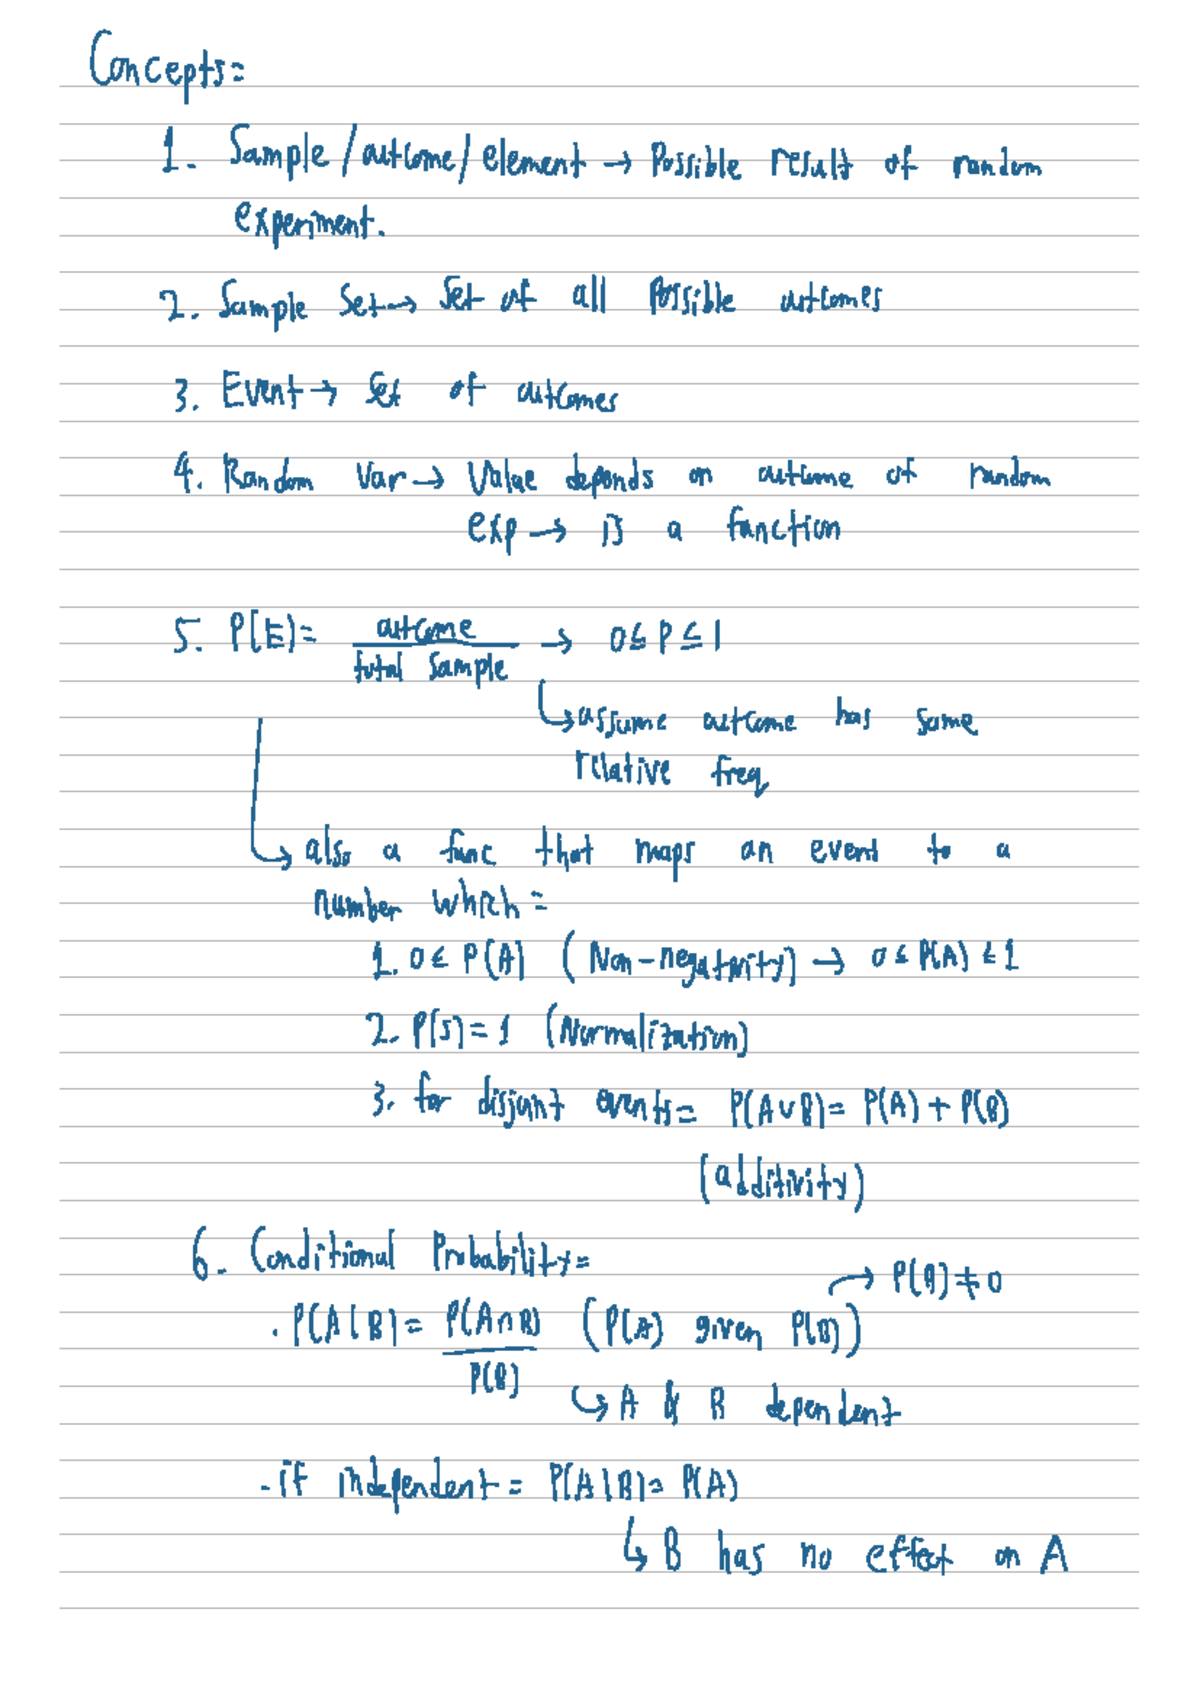 Concepts=
1. Sample/outcome/element → Possible result of random
experiment.
2. Sample Set → Set of all Possible outcomes
3. Event → Set of outcomes
4. Random Var → Value depends on outcome of random
exp → is a function
5. P(E) = outcome / total sample → 0 ≤ P ≤ 1
↳ assume outcome has same
relative freq
↳ also a func that maps an event to a
number which =
1. 0 ≤ P(A) (Non-negativity) → 0 ≤ P(A) ≤ 1
2. P(S) = 1 (Normalization)
3. for disjunt events = P(A∪B) = P(A) + P(B)
(additivity)
6. Conditional Probability =
→ P(B) ≠ 0
. P(A|B) = P(A∩B) / P(B) (P(A) given P(B))
↳ A & B dependent
- if independent = P(A|B) = P(A)
↳ B has no effect on A